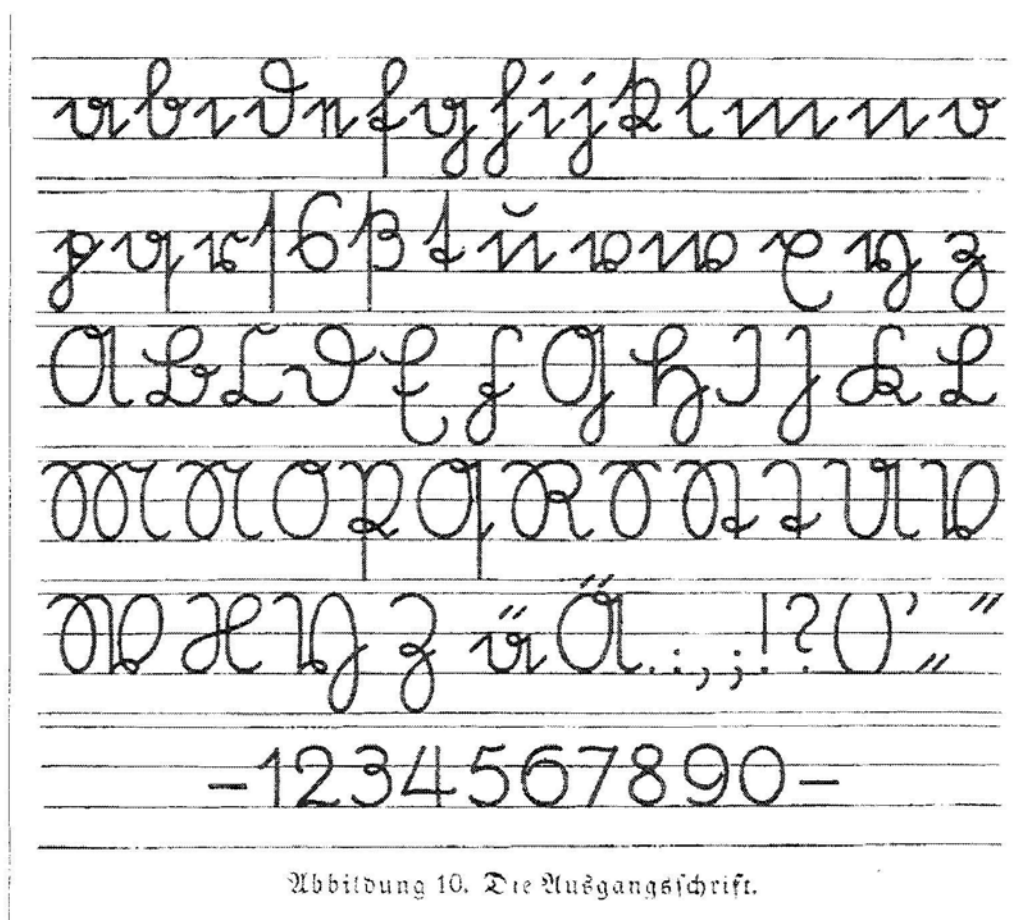 a b c d e f g h i j k l m n o
p q r ſ s ß t u v w x y z
A B C D E F G H I J K L
M N O P Q R S St T U V
W X Y Z ä Ä . : , ; ! ? ( ) ’ „ “
- 1 2 3 4 5 6 7 8 9 0 -
Abbildung 10. Die Ausgangsschrift.